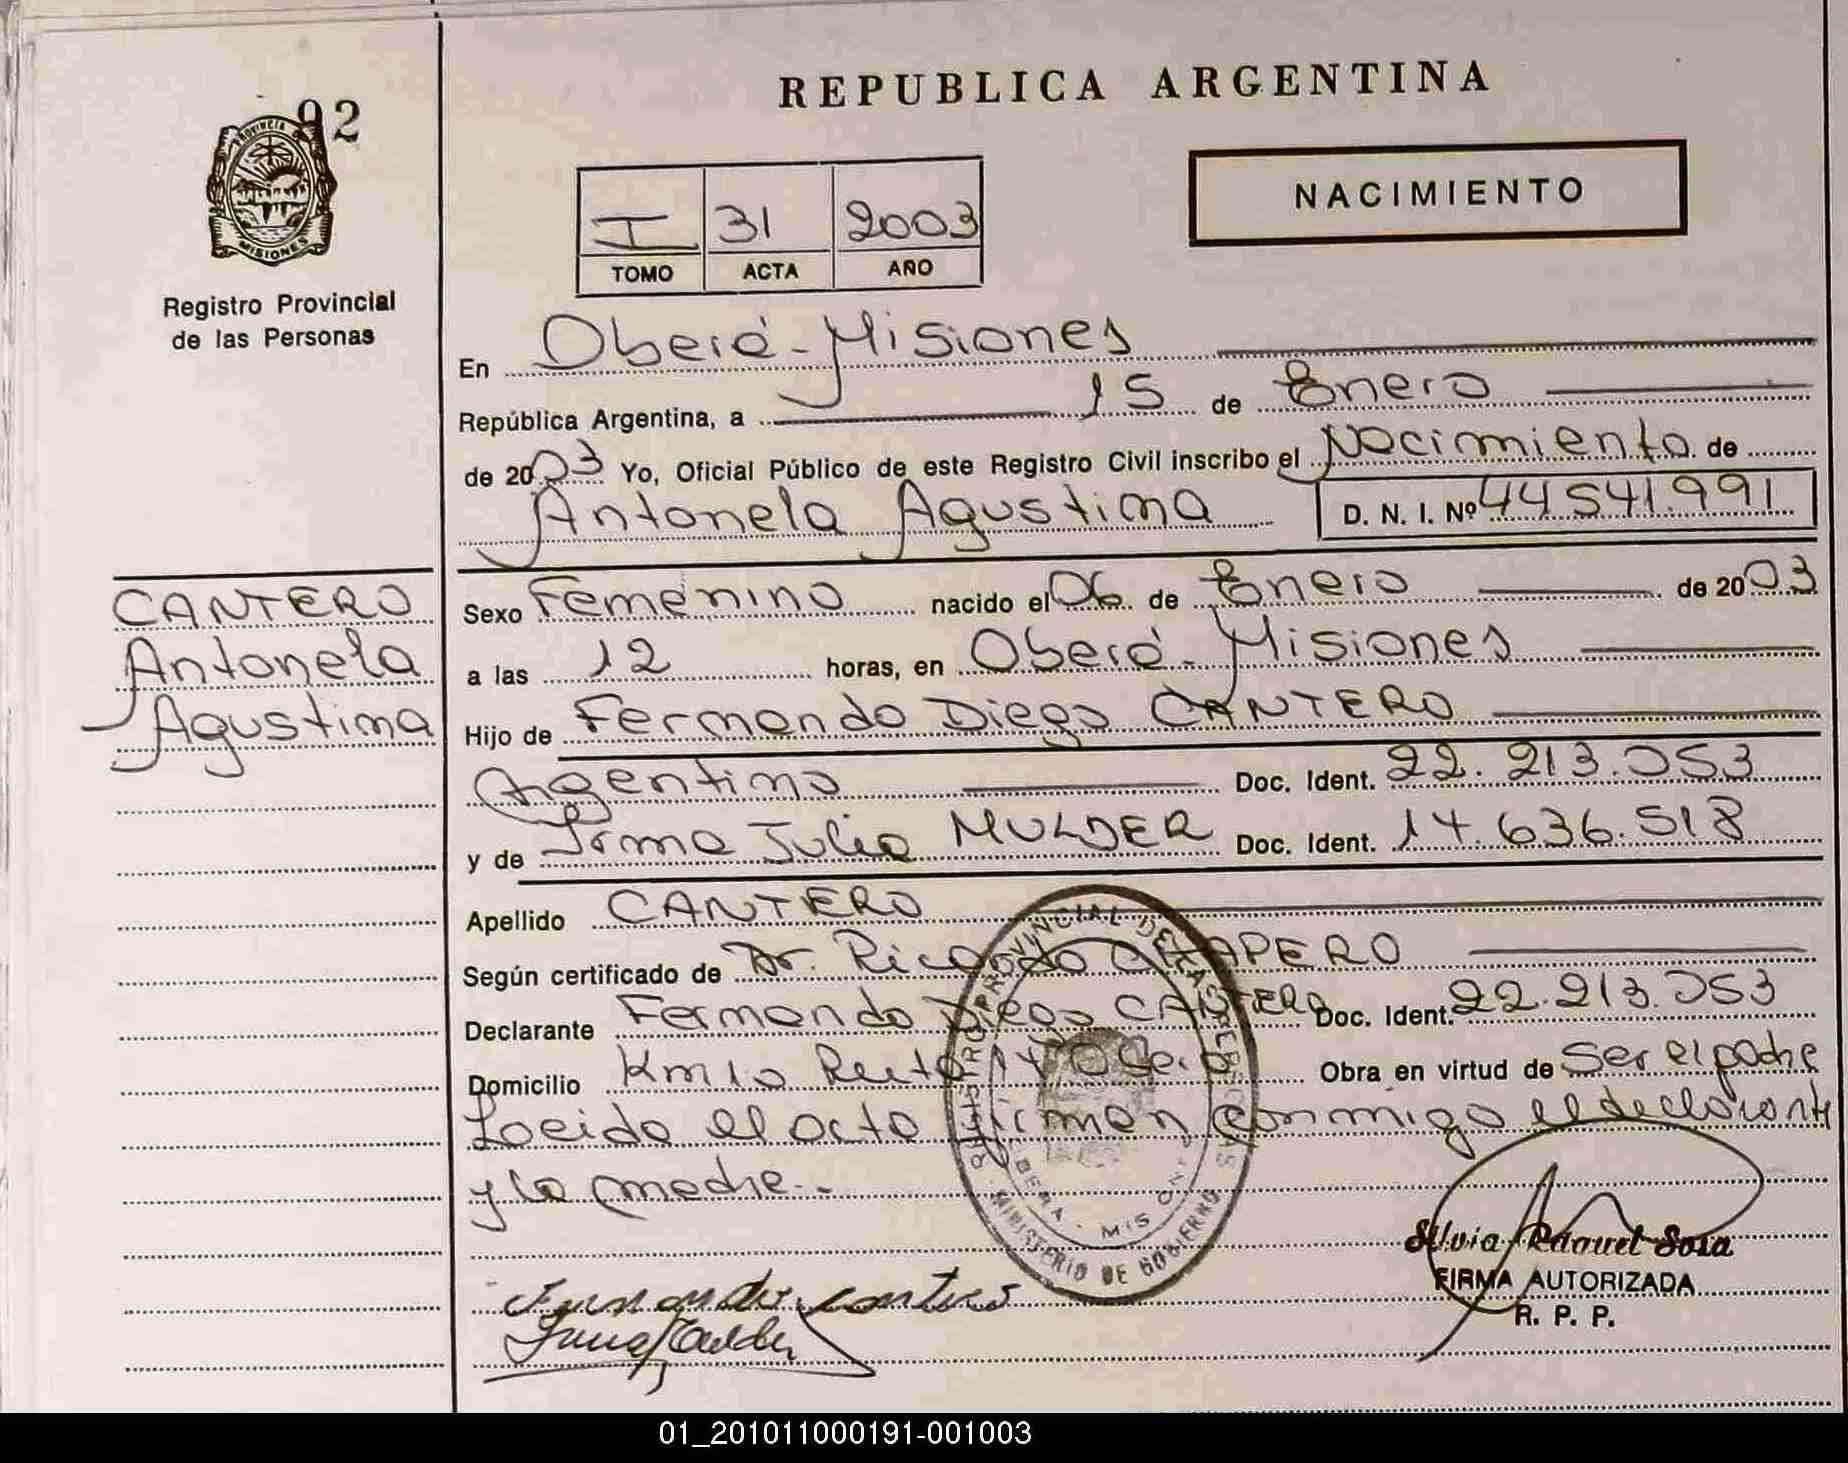 92
REPUBLICA ARGENTINA
NACIMIENTO
I 31 2003
TOMO ACTA AÑO
PROVINCIA DE MISIONES
Registro Provincial
de las Personas
En Oberá - Misiones
República Argentina, a 15 de Enero
de 2003 Yo, Oficial Público de este Registro Civil inscribo el Nacimiento de
Antonela Agustina D. N. I. Nº 44541.991
CANTERO
Antonela
Agustina
Sexo Femenino nacido el 06 de Enero de 2003
a las 12 horas, en Oberá - Misiones
Hijo de Fernando Diego CANTERO
Argentino Doc. Ident. 22.213.053
y de Irma Julia MULDER Doc. Ident. 14.636.518
Apellido CANTERO
Según certificado de Dr. Ricardo
Declarante Fernando Diego CANTERO Doc. Ident. 22.213.053
Domicilio Km 10 Ruta 14 Obra en virtud de Ser el padre
Leido el acta firman conmigo el declarante
y la madre.-
REGISTRO PROVINCIAL DE LAS PERSONAS
MINISTERIO DE GOBIERNO
OBERA - MISIONES
Silvia Raquel Sosa
FIRMA AUTORIZADA
R. P. P.
01_201011000191-001003